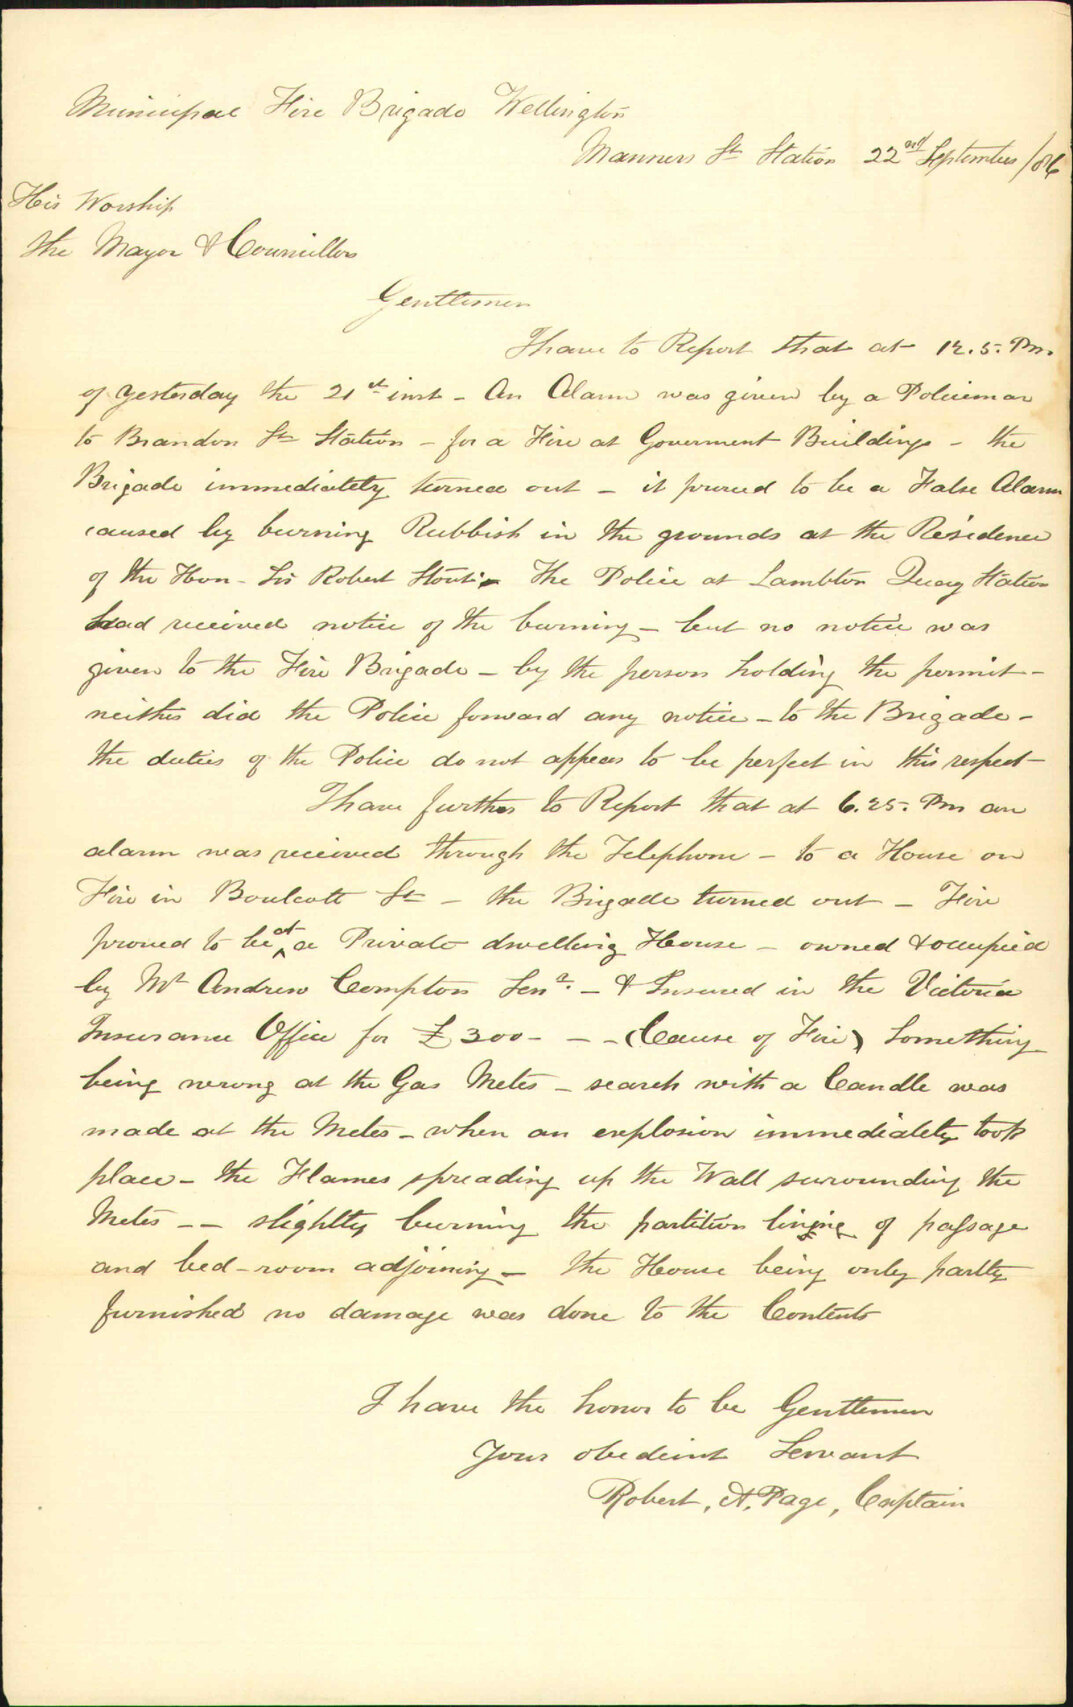 Municipal Fire Brigade Wellington
Manners St Station 22nd September /86
His Worship
the Mayor & Councillors
Gentlemen
I have to Report that at 12.5. Pm.
of yesterday the 21st inst - An Alarm was given by a Policeman
to Brandon St Station - for a Fire at Government Buildings - the
Brigade immediately turned out - it proved to be a False Alarm
caused by burning Rubbish in the grounds at the Residence
of the Hon - Sir Robert Stout - The Police at Lambton Quay Station
had received notice of the burning - but no notice was
given to the Fire Brigade - by the person holding the permit -
neither did the Police forward any notice - to the Brigade -
the duties of the Police do not appear to be perfect in this respect -
I have further to Report that at 6.25. Pm an
alarm was received through the Telephone - to a House on
Fire in Boulcott St - the Brigade turned out - Fire
proved to be at a Private dwelling House - owned & occupied
by Mr Andrew Compton Senr. - & Insured in the Victoria
Insurance Office for £300 - - - (Cause of Fire) Something
being wrong at the Gas Meter - search with a Candle was
made at the Meter - when an explosion immediately took
place - the Flames spreading up the Wall surrounding the
Meter - - slightly burning the partition lining of passage
and bed-room adjoining - the House being only partly
furnished no damage was done to the Contents
I have the honor to be Gentlemen
Your obedient Servant
Robert, A, Page, Captain